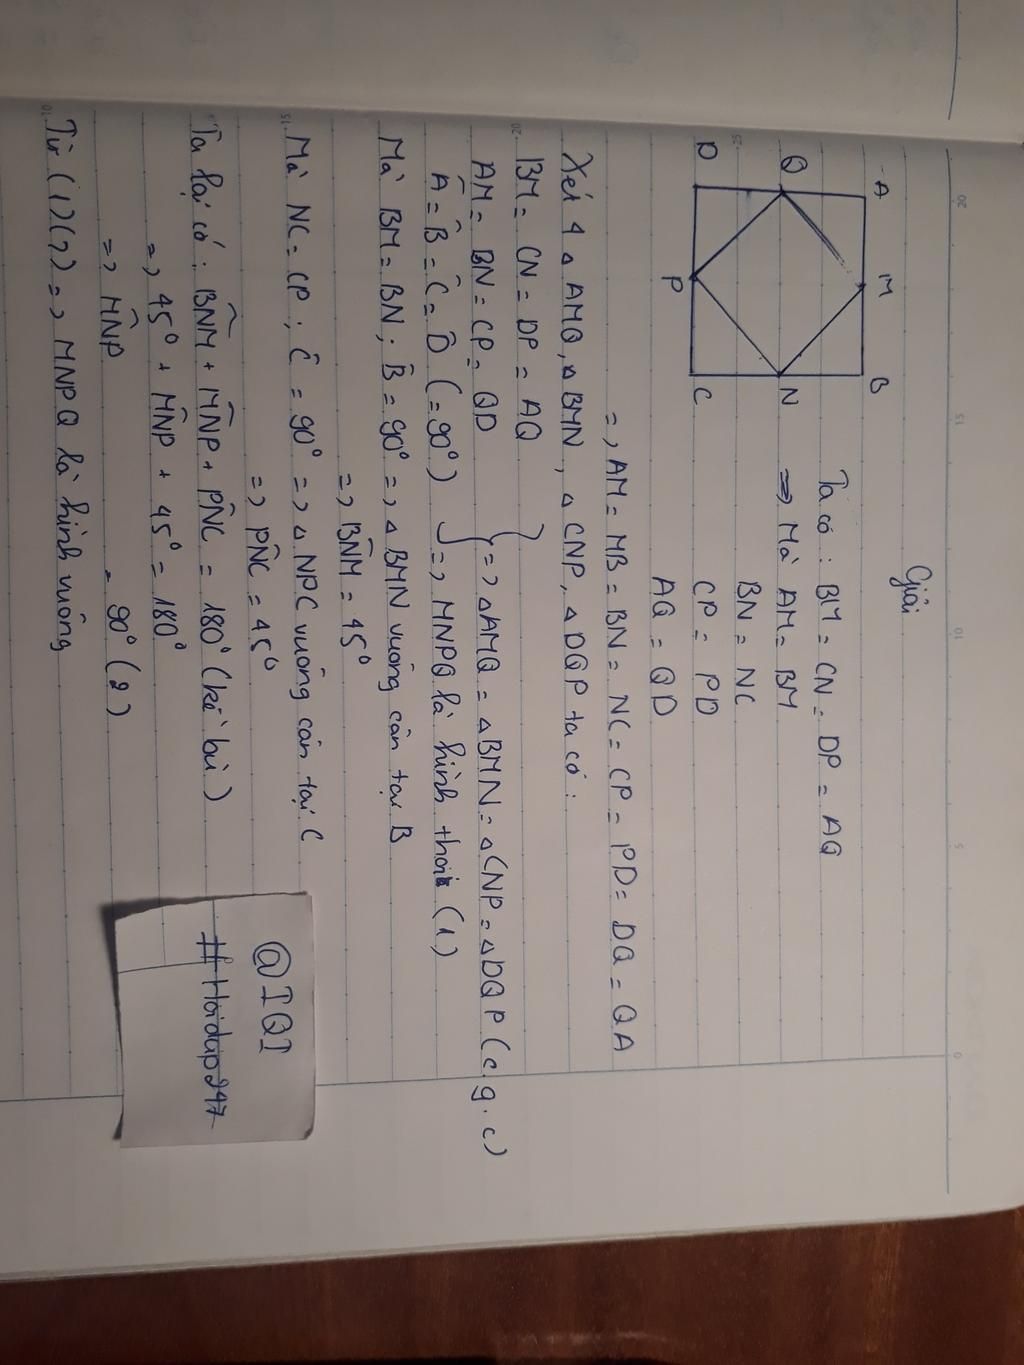 Giải
A M B
Q N
D P C
Ta có : BM = CN = DP = AQ
=> Mà AM = BM
BN = NC
CP = PD
AQ = QD
=> AM = MB = BN = NC = CP = PD = DQ = QA
Xét 4 Δ AMQ, Δ BMN, Δ CNP, Δ DQP ta có :
BM = CN = DP = AQ
AM = BN = CP = QD } => ΔAMQ = ΔBMN = ΔCNP = ΔDQP (c.g.c)
Â = B̂ = Ĉ = D̂ (= 90°) => MNPQ là hình thoi (1)
Mà BM = BN ; B̂ = 90° => Δ BMN vuông cân tại B
=> BN̂M = 45°
Mà NC = CP ; Ĉ = 90° => Δ NPC vuông cân tại C
=> PN̂C = 45°
Ta lại có : BN̂M + MN̂P + PN̂C = 180° (kề bù)
=> 45° + MN̂P + 45° = 180°
=> MN̂P = 90° (2)
Từ (1)(2) => MNPQ là hình vuông
@IQI
#Hoidap247
20
15
10
5
0
25
20
15
10